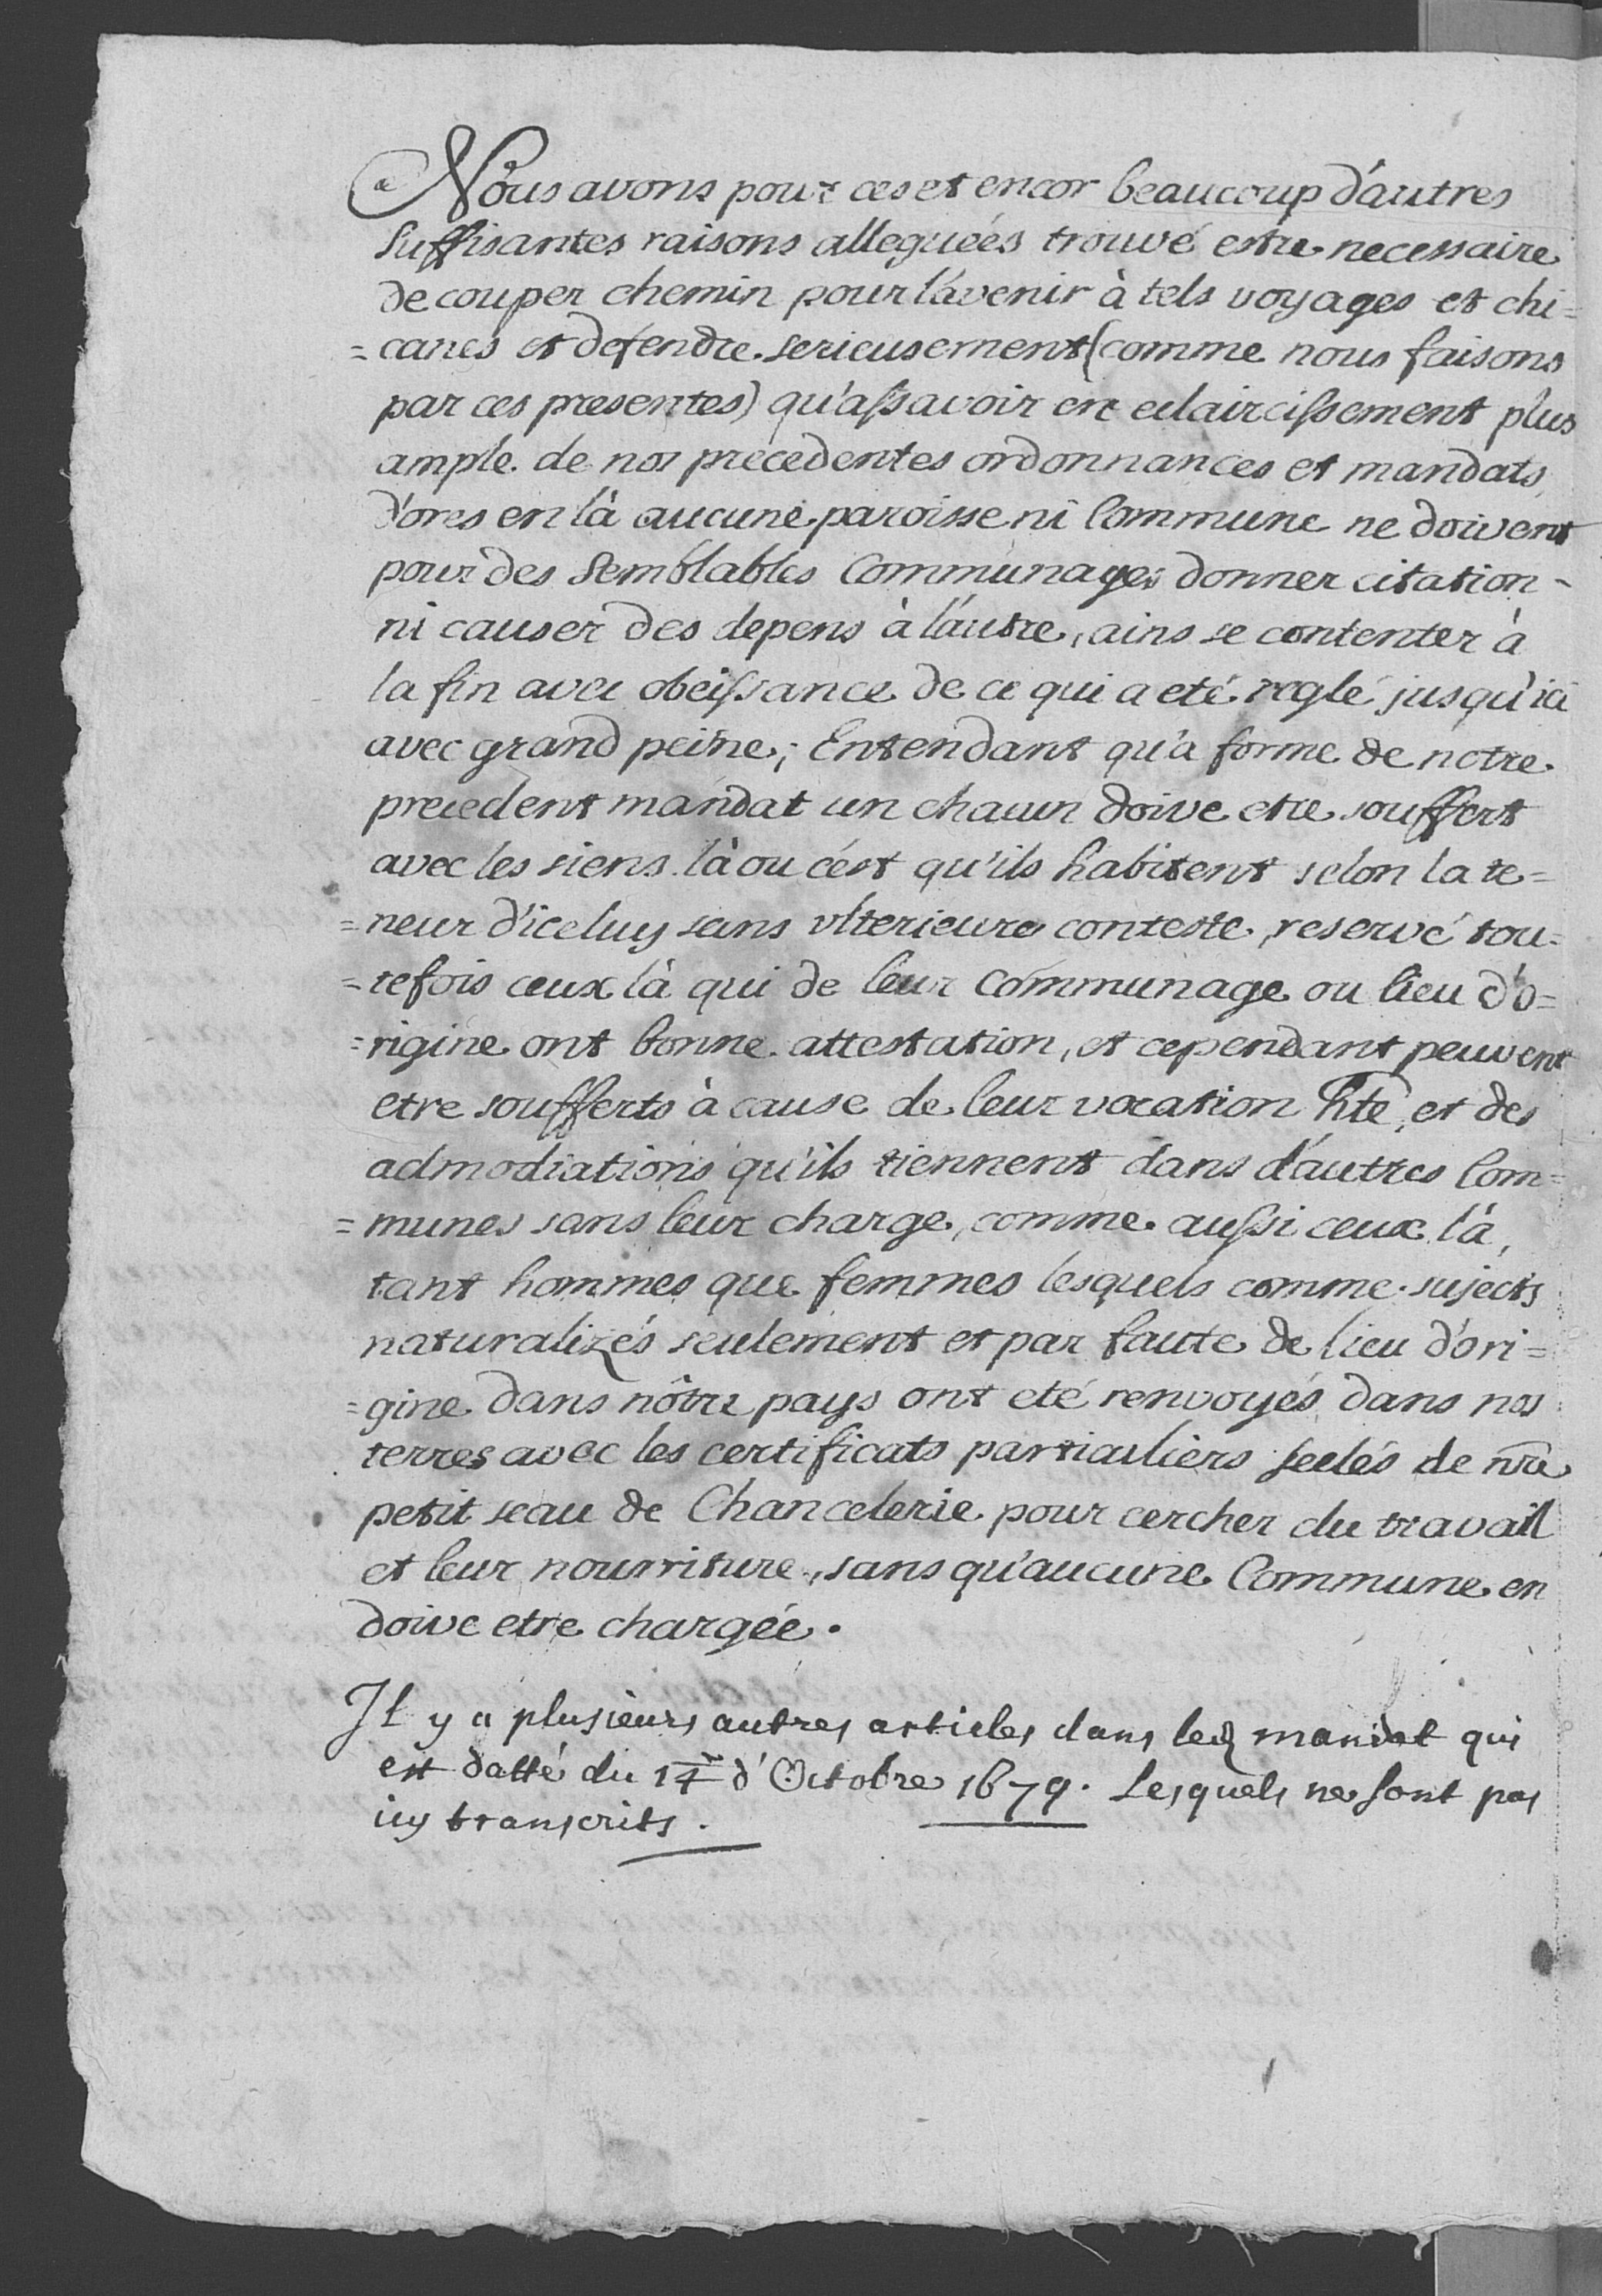 Nous avons pour ces et encor beaucoup d'autres
suffisantes raisons alleguées trouvé estre necessaire
de couper chemin pour l'avenir à tels voyages et chi=
=canes et defendre serieusement (comme nous faisons
par ces presentes) qu'assavoir en eclaircissement plus
ample de nos precedentes ordonnances et mandats
d'ores en là aucune paroisse ni Commune ne doivent
pour des semblables Communages donner citation -
ni causer des depens à l'autre, ains se contenter à
la fin avec obeissance de ce qui a eté reglé jusqu'ici
avec grand peine; Entendant qu'a forme de notre
precedent mandat un chacun doive etre souffert
avec les siens là ou c'est qu'ils habitent selon la te=
=neur d'iceluy sans ulterieure conteste, reservé tou=
=tefois ceux là qui de leur Communage ou lieu d'o=
=rigine ont bonne attestation, et cependant peuvent
etre soufferts à cause de leur vocation hte, et des
admodiations qu'ils tiennent dans d'autres Com=
=munes sans leur charge, comme aussi ceux là,
tant hommes que femmes lesquels comme sujects
naturalizés seulement et par faute de lieu d'ori=
=gine dans nôtre pays ont eté renvoyés dans nos
terres avec les certificats particuliers seelés de nre
petit seau de Chancelerie pour cercher du travail
et leur nourriture, sans qu'aucune Commune en
doive etre chargée.
Il y a plusieurs autres articles dans led mandat qui
est datté du d'Octobre 1679. Lesquels ne sont pas
icy transcrits.